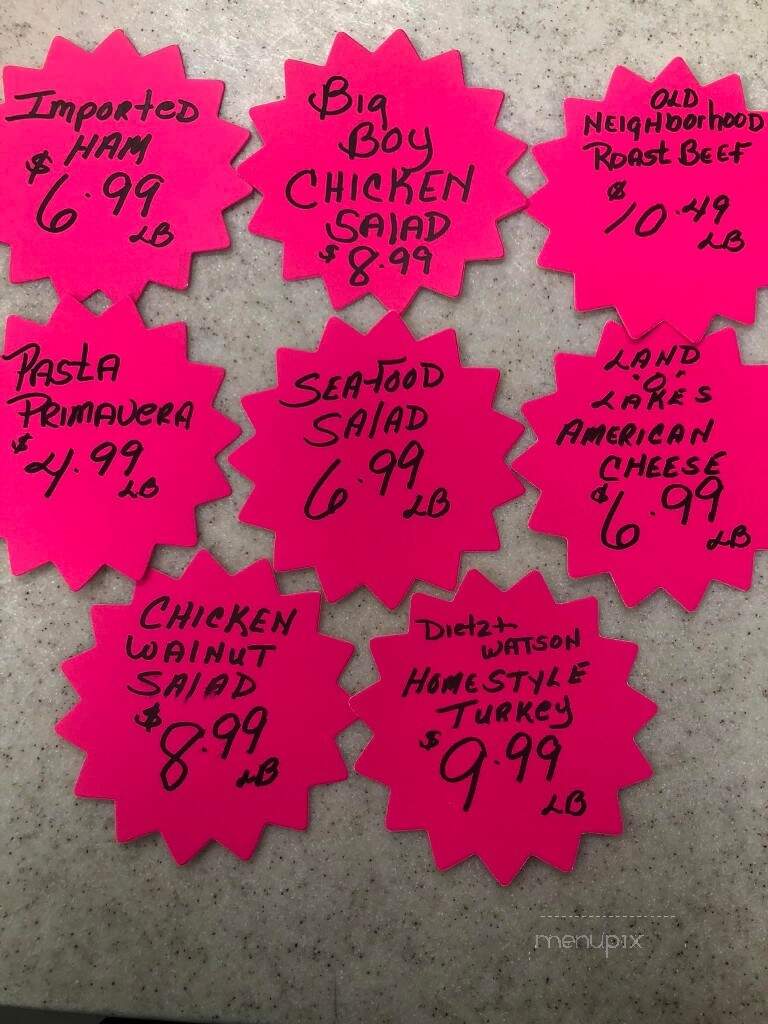 Imported
HAM
$6.99
LB
Big
Boy
CHICKEN
SALAD
$8.99
OLD
NEIGHborhOOD
ROAST BEEF
$10.49
LB
PASTA
PRIMAVERA
$4.99
LB
SEAFOOD
SALAD
6.99
LB
LAND
"O"
LAKES
AMERICAN
CHEESE
$6.99
LB
CHICKEN
WALNUT
SALAD
$8.99
LB
Dietz+
WATSON
HOMESTYLE
TURKEY
$9.99
LB
menupix